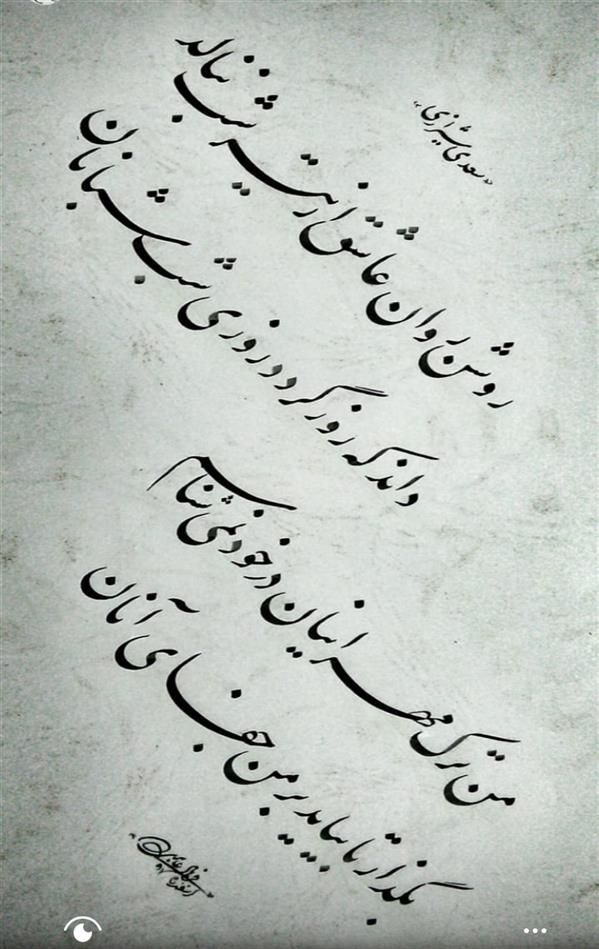 «سعدی شیرازی»
روشن روان عاشق از تیره شب ننالد
داند که روز گردد روزی شب شبانان
من ترک مهر اینان در خود نمی شناسم
بگذار تا بیاید بر من جفای آنان